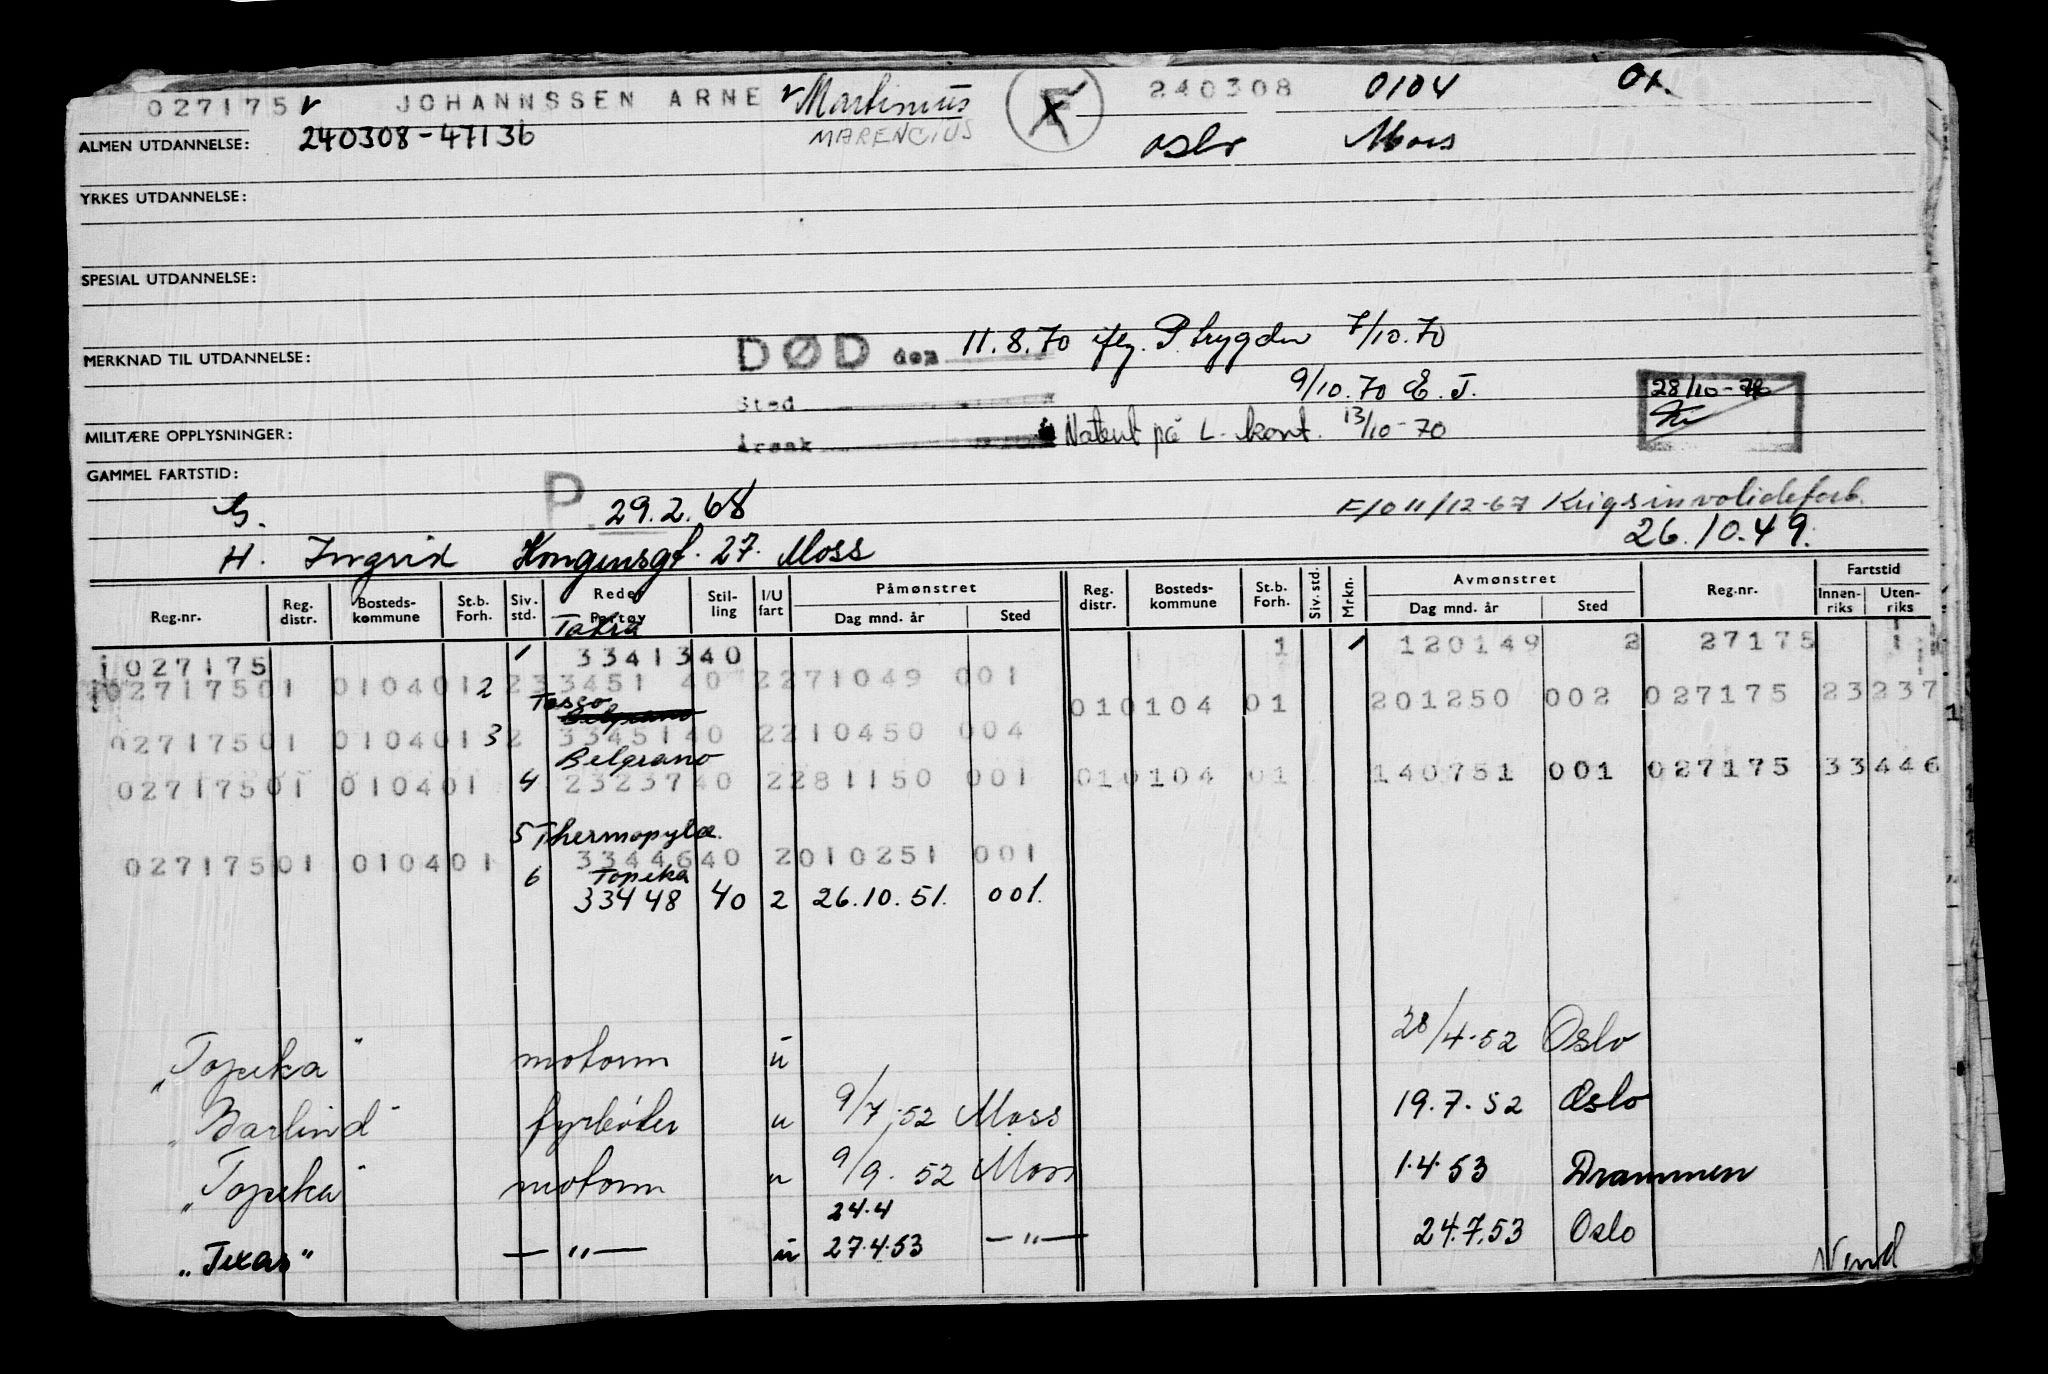 027175 v JOHANNSSEN ARNE v Martinius F 240308 0104 01.
ALMEN UTDANNELSE: 240308-47136 MARENCIUS Oslo Moss
YRKES UTDANNELSE:
SPESIAL UTDANNELSE:
MERKNAD TIL UTDANNELSE: DØD den 11.8.70 iflg. P. trygden 7/10.70
Sted 9/10.70 E. J. 28/10-70
MILITÆRE OPPLYSNINGER: Årsak Notert på L. kont. 13/10-70
GAMMEL FARTSTID:
G. P. 29.2.68 F/O 11/12-67 Krigsinvalideforb.
26.10.49.
H. Ingrid Kongensgt. 27. Moss
Reg.nr. Reg. distr. Bosteds-kommune St.b. Forh. Siv. std. Reder Fartøy Stil-ling I/U fart Påmønstret Dag mnd. år Sted Reg. distr. Bosteds-kommune St.b. Forh. Siv. std. Mrkn. Avmønstret Dag mnd. år Sted Reg.nr. Fartstid Innen-riks Uten-riks
Takra
027175 1 33413 40 1 1 120149 2 27175 1
02717501 010401 2 2 33451 40 2 271049 001
Tosco
Belgrano 010104 01 201250 002 027175 23237
02717501 010401 3 2 33451 40 2 210450 004
Belgrano
02717501 010401 4 23237 40 2 281150 001 010104 01 140751 001 027175 33446
5 Thermopylæ.
02717501 010401 33446 40 2 010251 001
6 Topeka
33448 40 2 26.10.51. 001.
"Topeka" motorm u 28/4-52 Oslo
"Barlind" fyrbøter u 9/7.52 Moss 19.7.52 Oslo
"Topeka" motorm u 9/9.52 Moss 1.4.53 Drammen
24.4
"Texas" — " — u 27.4.53 — " — 24.7.53 Oslo
Vend